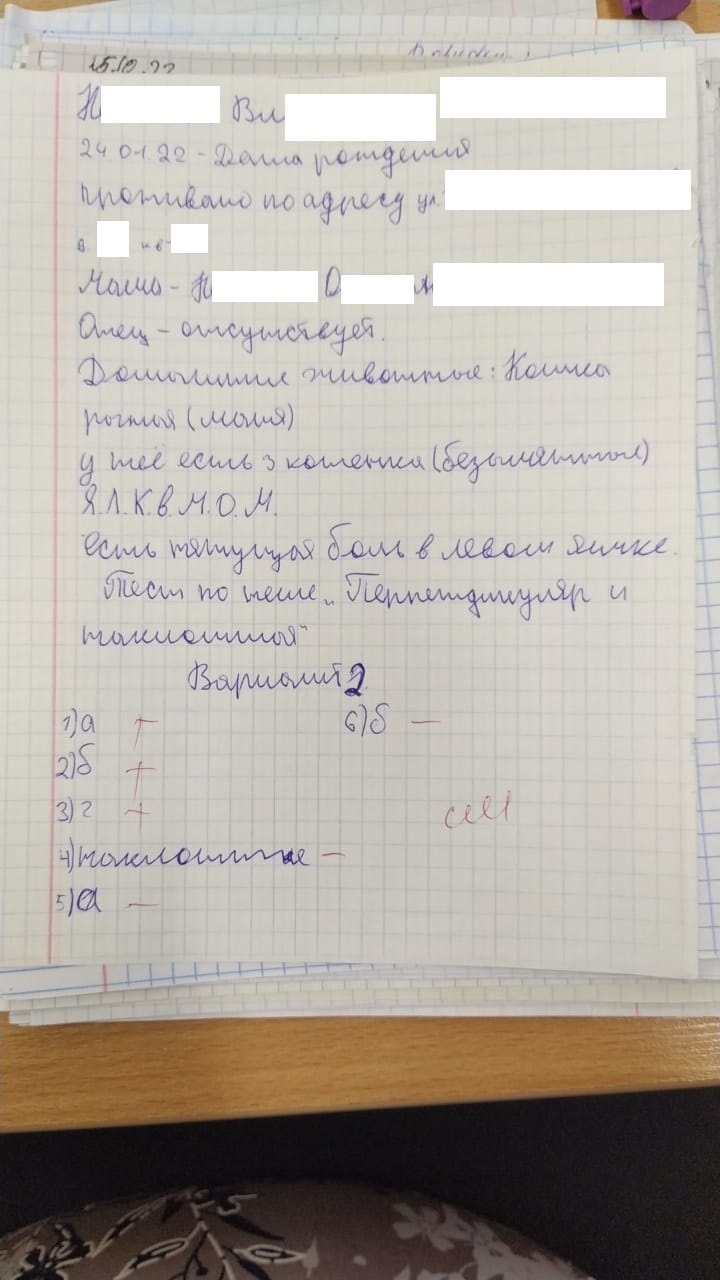 15.10.22
Н Вл
24 01.22 - Дата рождения
проживаю по адресу ул.
д. кв
Мама - Н О
Отец - отсутствует.
Домашние животные: Кошка
рыжая (маня)
у неё есть 3 котенка (безымянных)
Я.Л.К.В.М.О.М.
есть тянущая боль в левом яичке.
Тест по теме „Перпендикуляр и
наклонная"
Вариант 2
1) а +
6) б —
2) б +
3) г +
4) наклонные —
5) а —